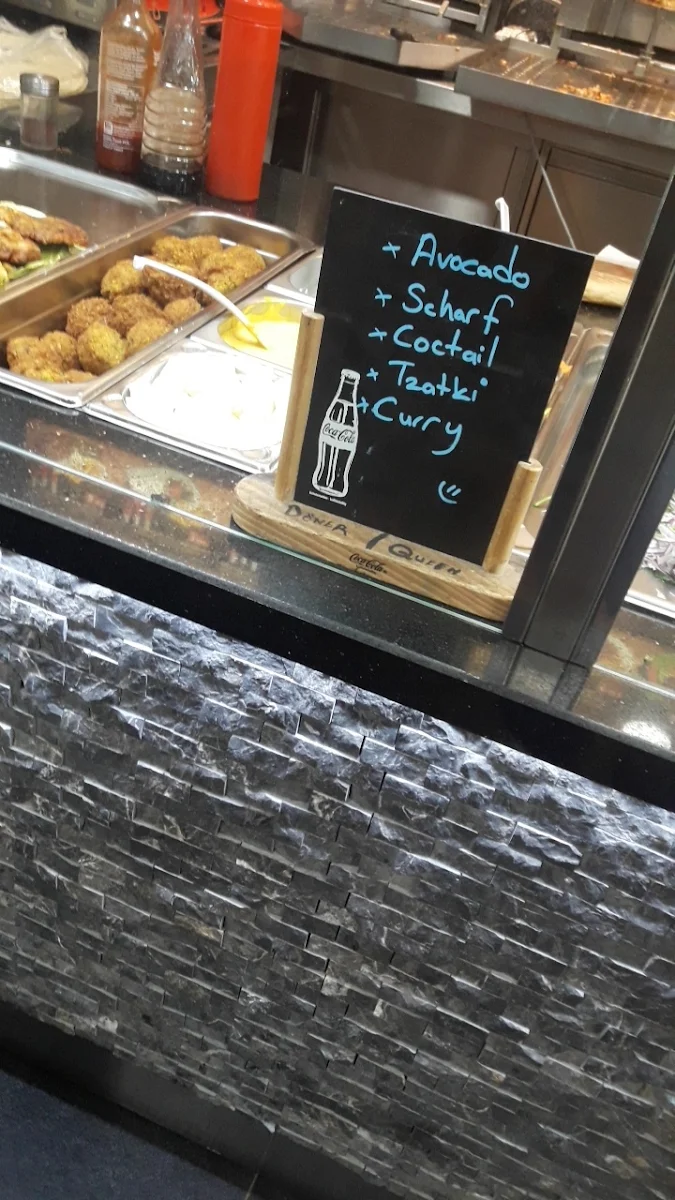 × Avocado
× Scharf
× Coctail
× Tzatki
× Curry
Coca-Cola
DÖNER / QUEEN
Coca-Cola